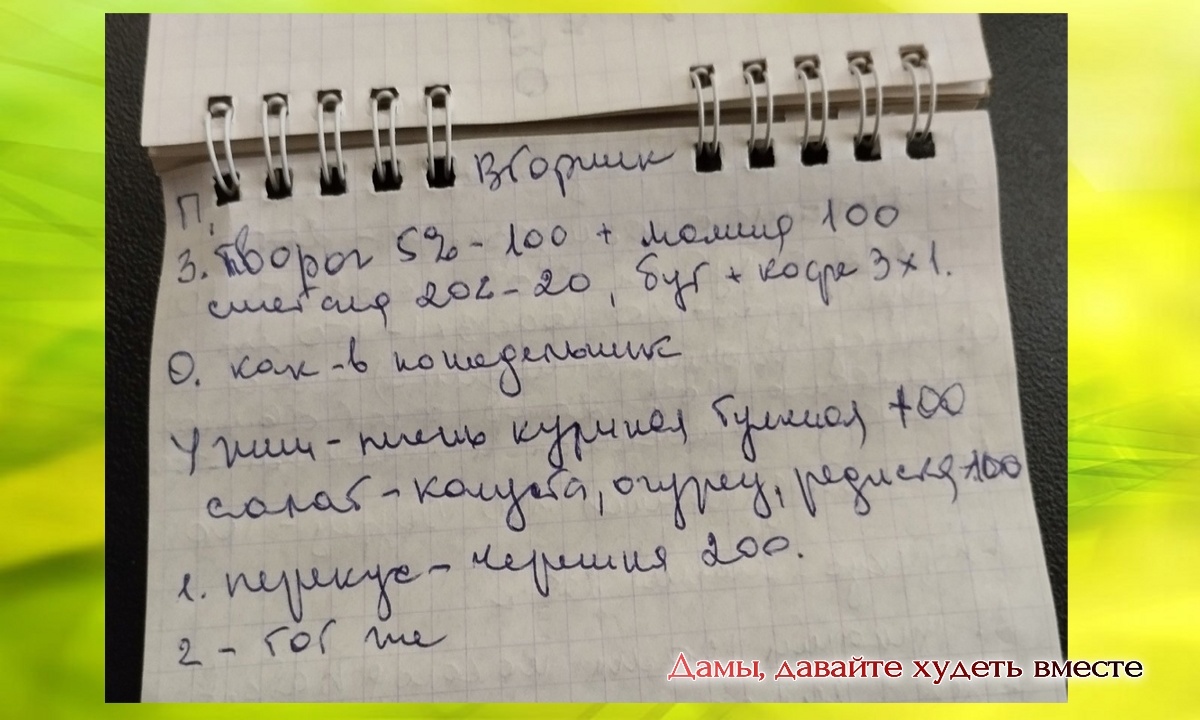 Вторник
П.
З. Творог 5% - 100 + малина 100
сметана 20% - 20, бут + кофе 3х1.
О. как - в понедельник
Ужин - куриная 100
салат - капуста, огурец, редиска 100
1. перекус - черешня 200.
2 - тот же
Дамы, давайте худеть вместе